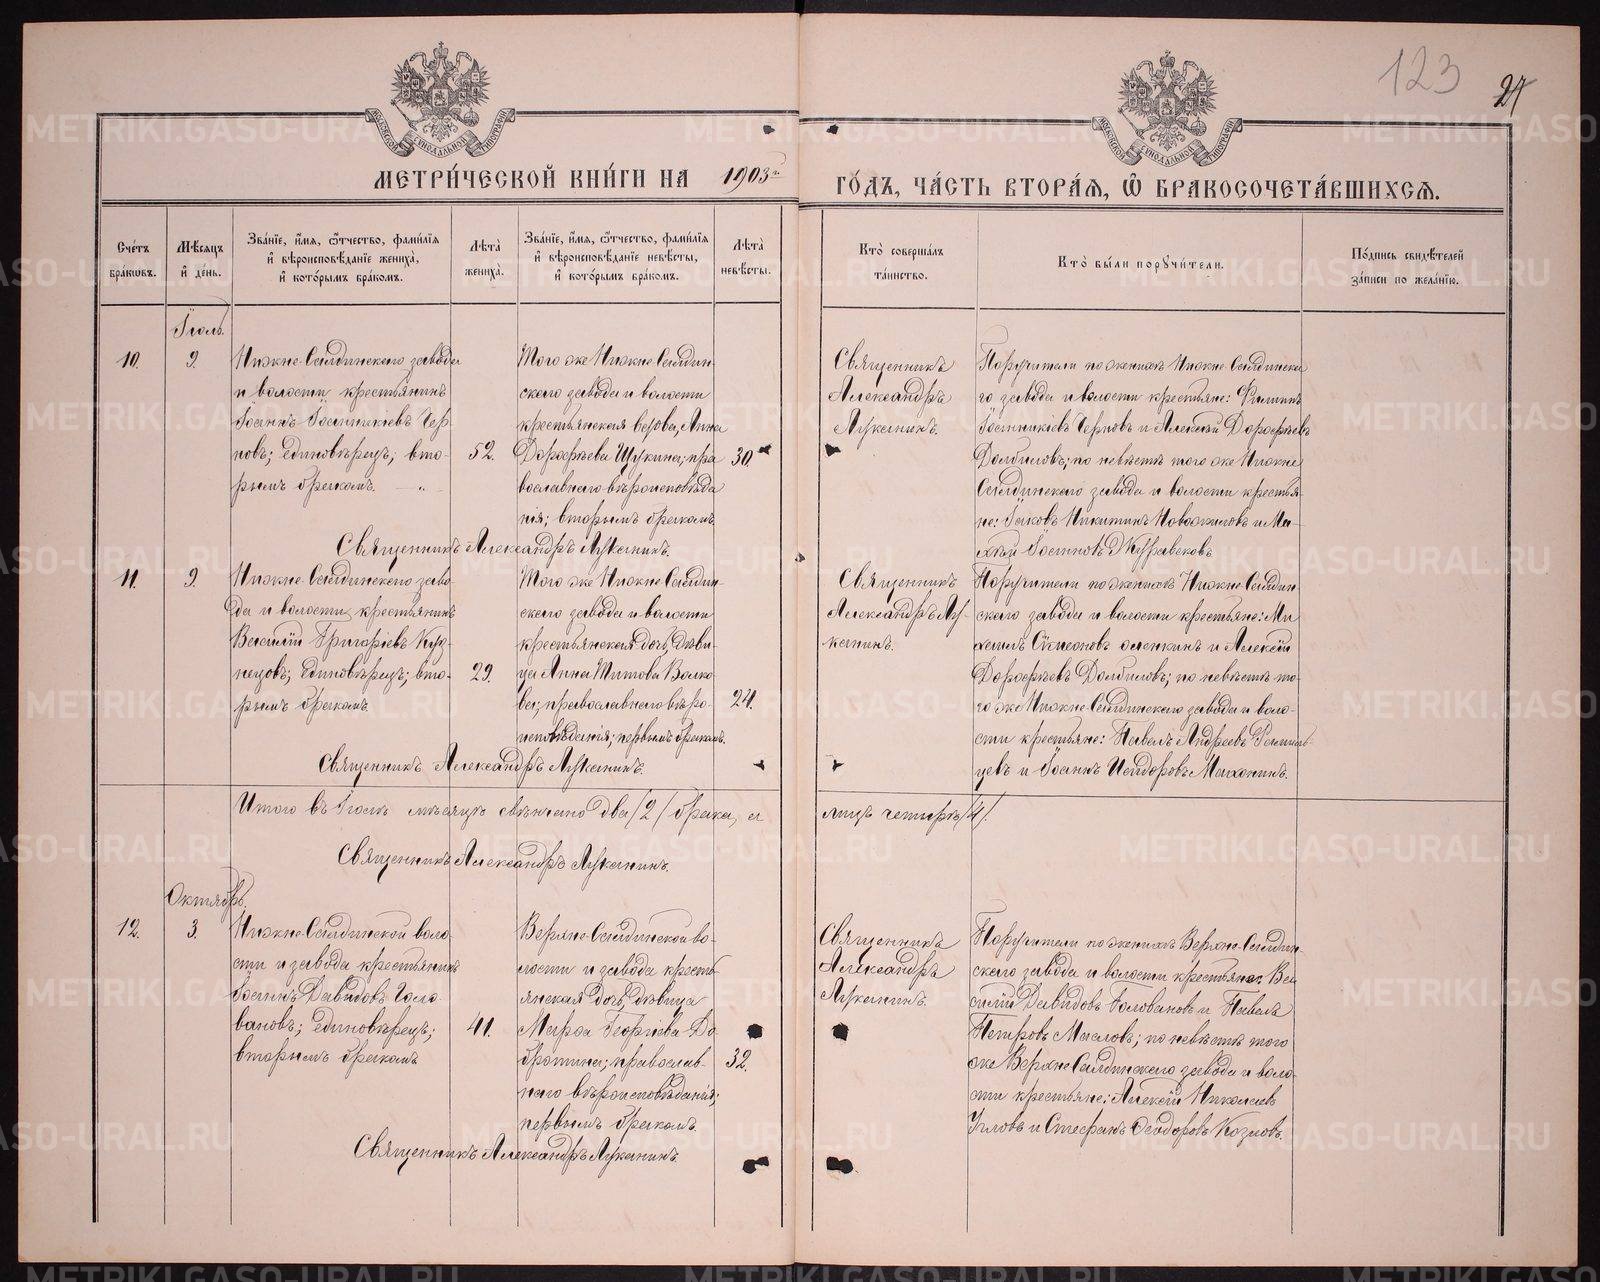 123
27
МЕТРИ́ЧЕСКОЙ КНИ́ГИ НА 1903й ГО́ДЪ, ЧА́СТЬ ВТОРА́Я, Ѿ БРАКОСОЧЕТА́ВШИХСЯ.
Сче́тъ бра́кѡвъ.
Мѣ́сяцъ и҆ де́нь.
Зва́нїе, и҆́мя, ѻ҆́тчество, фами́лїя и҆ вѣроисповѣ́данїе жениха̀, и҆ кото́рымъ бра́комъ.
Лѣта̀ жениха̀.
Зва́нїе, и҆́мя, ѻ҆́тчество, фами́лїя и҆ вѣроисповѣ́данїе невѣ́сты, и҆ кото́рымъ бра́комъ.
Лѣта̀ невѣ́сты.
Кто̀ соверша́лъ та́инство.
Кто̀ бы́ли порꙋчи́тели.
По́дпись свидѣ́телей за́писи по жела́нїю.
Іюль.
10.
9.
Нижне-Салдинскаго завода
и волости крестьянинъ
Іоаннъ Іоанникіевъ Чер-
новъ; единовѣрецъ; вто-
рымъ бракомъ.
52.
Того же Нижне-Салдин-
скаго завода и волости
крестьянская вдова, Анна
Дороѳѣева Щукина; пра
вославнаго вѣроисповѣда
нія; вторымъ бракомъ.
30.
Священникъ
Александръ
Луканинъ.
Поручители по женихѣ Нижне-Салдинска
го завода и волости крестьяне: Филиппъ
Іоанникіевъ Черновъ и Алексій Дороѳѣевъ
Долбиловъ; по невѣстѣ того же Нижне
Салдинскаго завода и волости крестья-
не: Іаковъ Никитинъ Новожиловъ и Ма-
ѳей Іоанновъ Журавековъ
Священникъ Александръ Луканинъ.
11.
9.
Нижне-Салдинскаго заво
да и волости, крестьянинъ
Василій Григоріевъ Куз-
нецовъ; единовѣрецъ; вто-
рымъ бракомъ.
29.
Того же Нижне-Салдин-
скаго завода и волости
крестьянская дочь, дѣви-
ца Анна Титова Волко
ва; православнаго вѣро-
исповѣданія; первымъ бракомъ.
24.
Священникъ
Александръ Лу-
канинъ.
Поручители по женихѣ Нижне-Салдин-
скаго завода и волости крестьяне: Ми
хаилъ Сѵмеоновъ и Алексій
Дороѳѣевъ Долбиловъ; по невѣстѣ то-
го же Нижне-Салдинскаго завода и воло-
сти крестьяне: Павелъ Андреевъ
цевъ и Іоаннъ Исидоровъ Маханинъ.
Священникъ Александръ Луканинъ.
Итого въ Іюлѣ мѣсяцѣ свѣнчано два /2/ брака, а лицъ четыре /4/.
Священникъ Александръ Луканинъ.
Октябрь.
12.
3.
Нижне-Салдинской воло-
сти и завода крестьянинъ
Іоаннъ Давидовъ Голо-
вановъ; единовѣрецъ;
вторымъ бракомъ
41.
Верхне-Салдинской во-
лости и завода кресть-
янская дочь, дѣвица
Марѳа Георгіева До
бротина; православ-
наго вѣроисповѣданія;
первымъ бракомъ.
32.
Священникъ
Александръ
Луканинъ.
Поручители по женихѣ Верхне-Салдин-
скаго завода и волости крестьяне: Ва
силій Давидовъ Головановъ и Павелъ
Петровъ Масловъ; по невѣстѣ того
же Верхне-Салдинскаго завода и воло-
сти крестьяне: Алексій Николаевъ
Угловъ и Стефанъ Ѳеодоровъ Козловъ.
Священникъ Александръ Луканинъ.